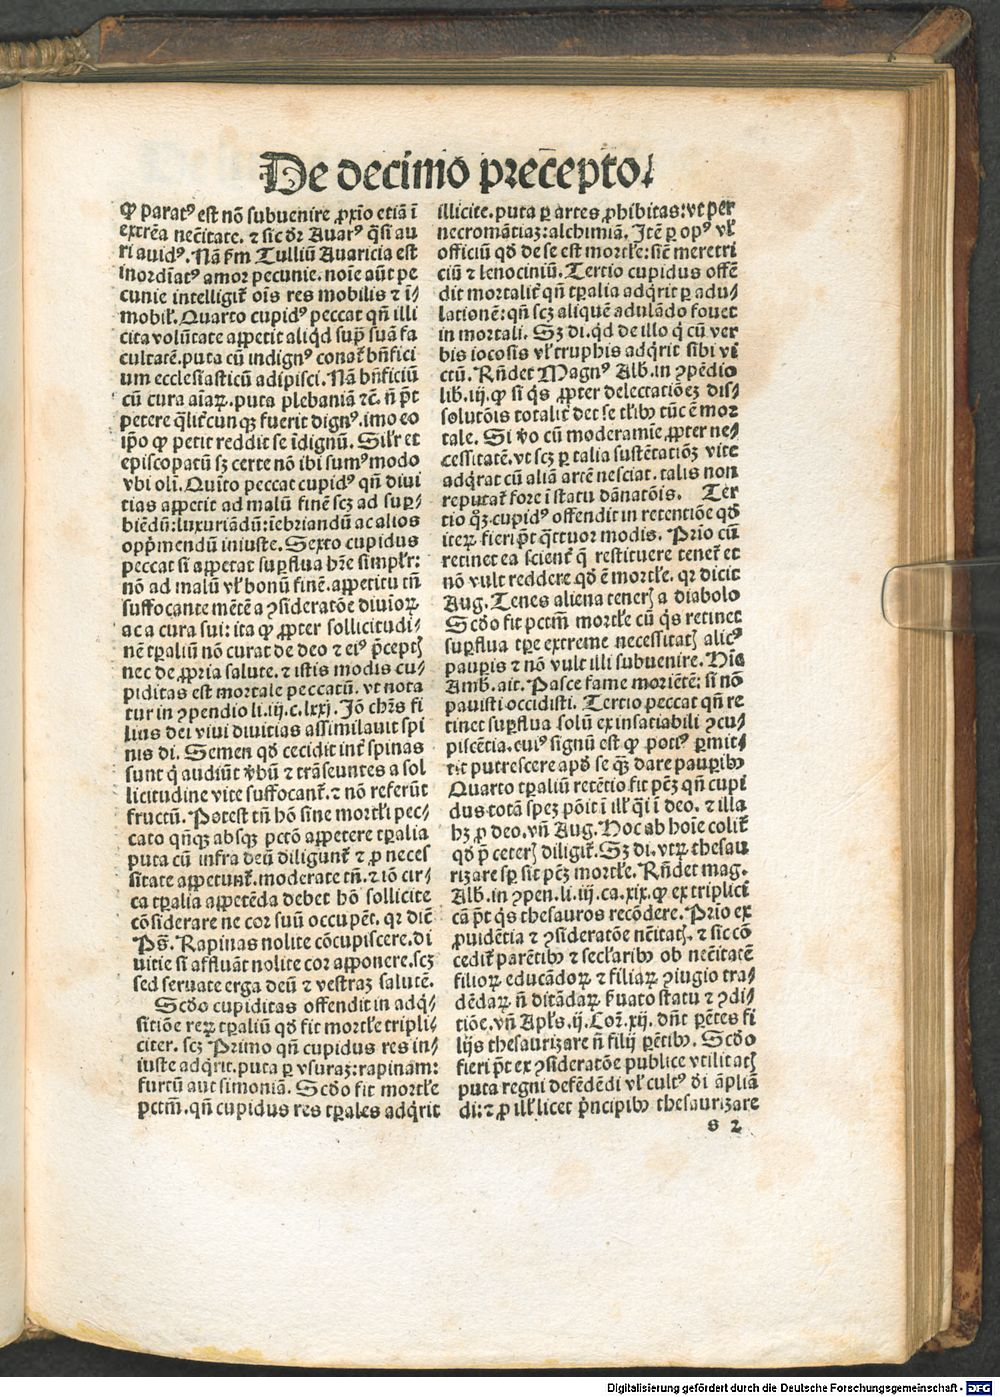 De decimo prec̄epto.
ꝙ paratꝰ est nō subuenire ꝓxīo etiā ī
extrēa nec̄itate. ⁊ sic dr̄ Auarꝰ q̄si au
ri auidꝰ. Nā ẜm Tulliū Auaricia est
inordīatꝰ amor pecunie. noīe aūt pe
cunie intelligit̄ oīs res mobilis ⁊ ī⸗
mobil̄. Quarto cupidꝰ peccat qn̄ illi
cita volūtate appetit aliqd supͣ suā fa
cultatē. puta cū indignꝰ conat̄ bn̄fici
um ecclesiasticū adipisci. Nā bn̄ficiū
cū cura aīaꝝ. puta plebaniā ⁊c̄. n̄ pt̄
petere qͣlit̄cunqꝫ fuerit dignꝰ. imo eo
ip̄o ꝙ petit reddit se īdignū. Sil̄r et
episcopatū sꝫ certe nō ibi sumꝰ modo
vbi oli. Quīto peccat cupidꝰ qn̄ diui
tias appetit ad malū finē scꝫ ad suꝑ⸗
biēdū: luxuriādū: īebriandū ac alios
opp̄mendū iniuste. Sexto cupidus
peccat si appetat suꝑflua hr̄e simpl̄r:
nō ad malū vl̄ bonū finē. appetitu tn̄
suffocante mētē a ꝯsideratōe diuīoꝝ
ac a cura sui: ita ꝙ ꝓpter sollicitudi⸗
nē tꝑaliū nō curat de deo ⁊ eiꝰ p̄ceptꝭ
nec de ꝓpria salute. ⁊ istis modis cu⸗
piditas est mortale peccatū. vt nota
tur in ꝯpendio li. iij. c. lxxj. Iō chr̄s fi
lius dei viui diuitias assimilauit spi
nis di. Semen qd̄ cecidit int̄ spinas
sunt qͥ audiūt ṽbū ⁊ trāseuntes a sol
licitudine vite suffocant̄. ⁊ nō referūt
fructū. Potest tn̄ hō sine mortl̄i pec⸗
cato qn̄qꝫ absqꝫ pctō appetere tꝑalia
puta cū infra deū diligunt̄ ⁊ ꝓ neces
sitate appetunt̄. moderate tn̄. ⁊ iō cir⸗
ca tꝑalia appetēda debet hō sollicite
cōsiderare ne cor suū occupēt. qꝛ dic̄
Ps̄. Rapinas nolite cōcupiscere. di
uitie si affluāt nolite cor apponere. scꝫ
sed seruate erga deū ⁊ vestraꝫ salutē.
Scd̄o cupiditas offendit in adqͥ⸗
sitiōe reꝝ tꝑaliū qd̄ fit mortl̄e tripli⸗
citer. scꝫ Primo qn̄ cupidus res in⸗
iuste adqͥrit. puta ꝑ vsuraꝫ: rapinam:
furtū aut simoniā. Scd̄o fit mortl̄e
pctm̄. qn̄ cupidus res tꝑales adqͥrit
illicite. puta ꝑ artes ꝓhibitas: vt per
necromātiaꝫ: alchimiā. Itē ꝑ opꝰ vl̄
officiū qd̄ de se est mortl̄e: sic̄ meretri
ciū ⁊ lenociniū. Tertio cupidus offē
dit mortalit̄ qn̄ tꝑalia adqͥrit ꝑ adu⸗
lationē: qn̄ scꝫ aliquē adulādo fouet
in mortali. Sꝫ di. qd de illo qͥ cū ver
bis iocosis vl̄ truphis adqͥrit sibi vi
ctū. Rn̄det Magnꝰ Alb. in ꝯpēdio
lib. iij. ꝙ si qͥs ꝓpter delectatiōeꝫ dis⸗
solutōis totalit̄ det se tl̄ibꝰ tūc ē mor
tale. Si ṽo cū moderamīe ꝓpter ne⸗
cessitatē. vt scꝫ ꝑ talia sustētatiōꝫ vite
adqͥrat cū aliā artē nesciat. talis non
reputat̄ fore ī statu dānatōis. Ter
tio qͦꝫ cupidꝰ offendit in retentiōe qd̄
iteꝝ fieri pt̄ qͣttuor modis. Prīo cū
retinet ea scient̄ q̄ restituere tenet̄ et
nō vult reddere qd̄ ē mortl̄e. qꝛ dicit
Aug. Tenes aliena tenerꝭ a diabolo
Scd̄o fit pctm̄ mortl̄e cū qͥs retinet
suꝑflua tꝑe extreme necessitatꝭ alicꝰ
pauꝑis ⁊ nō vult illi subuenire. Hīc
Amb. ait. Pasce fame moriētē: si nō
pauisti occidisti. Tertio peccat qn̄ re
tinet suꝑflua solū ex insatiabili ꝯcu⸗
piscētia. cuiꝰ signū est ꝙ potiꝰ ꝑmit⸗
tit putrescere apd̄ se qͣꝫ dare pauꝑibꝰ
Quarto tꝑaliū retētio fit pc̄ꝫ qn̄ cupi
dus totā speꝫ pōit ī ill̄ qͥ ī deo. ⁊ illa
hꝫ ꝓ deo. vn̄ Aug. Hoc ab hoīe colit̄
qd̄ p̄ ceterꝭ diligit̄. Sꝫ di. vtꝝ thesau
rizare sꝑ sit pc̄ꝫ mortl̄e. Rn̄det mag.
Alb. in ꝯpen. li. iij. ca. xix. ꝙ ex triplici
cā pt̄ qͥs thesauros recōdere. Prīo ex
ꝓuidētia ⁊ ꝯsideratōe nc̄itatꝭ. ⁊ sic cō
cedit̄ parētibꝰ ⁊ secl̄aribꝰ ob nec̄itatē
filioꝝ educādoꝝ ⁊ filiaꝝ ꝯiugio tra⸗
dēdaꝝ n̄ ditādaꝝ ẜuato statu ⁊ ꝯdi⸗
tiōe. vn̄ Apl̄s. ij. Cor̄. xij. dn̄t ꝑētes fi
lijs thesaurizare n̄ filij ꝑētibꝰ. Scd̄o
fieri pt̄ ex ꝯsideratōe publice vtilitatꝭ
puta regni defēdēdi vl̄ cultꝰ di āpliā
di: ⁊ ꝓ ill̄ licet pͥncipibꝰ thesaurizare
s 2
Digitalisierung gefördert durch die Deutsche Forschungsgemeinschaft - DFG